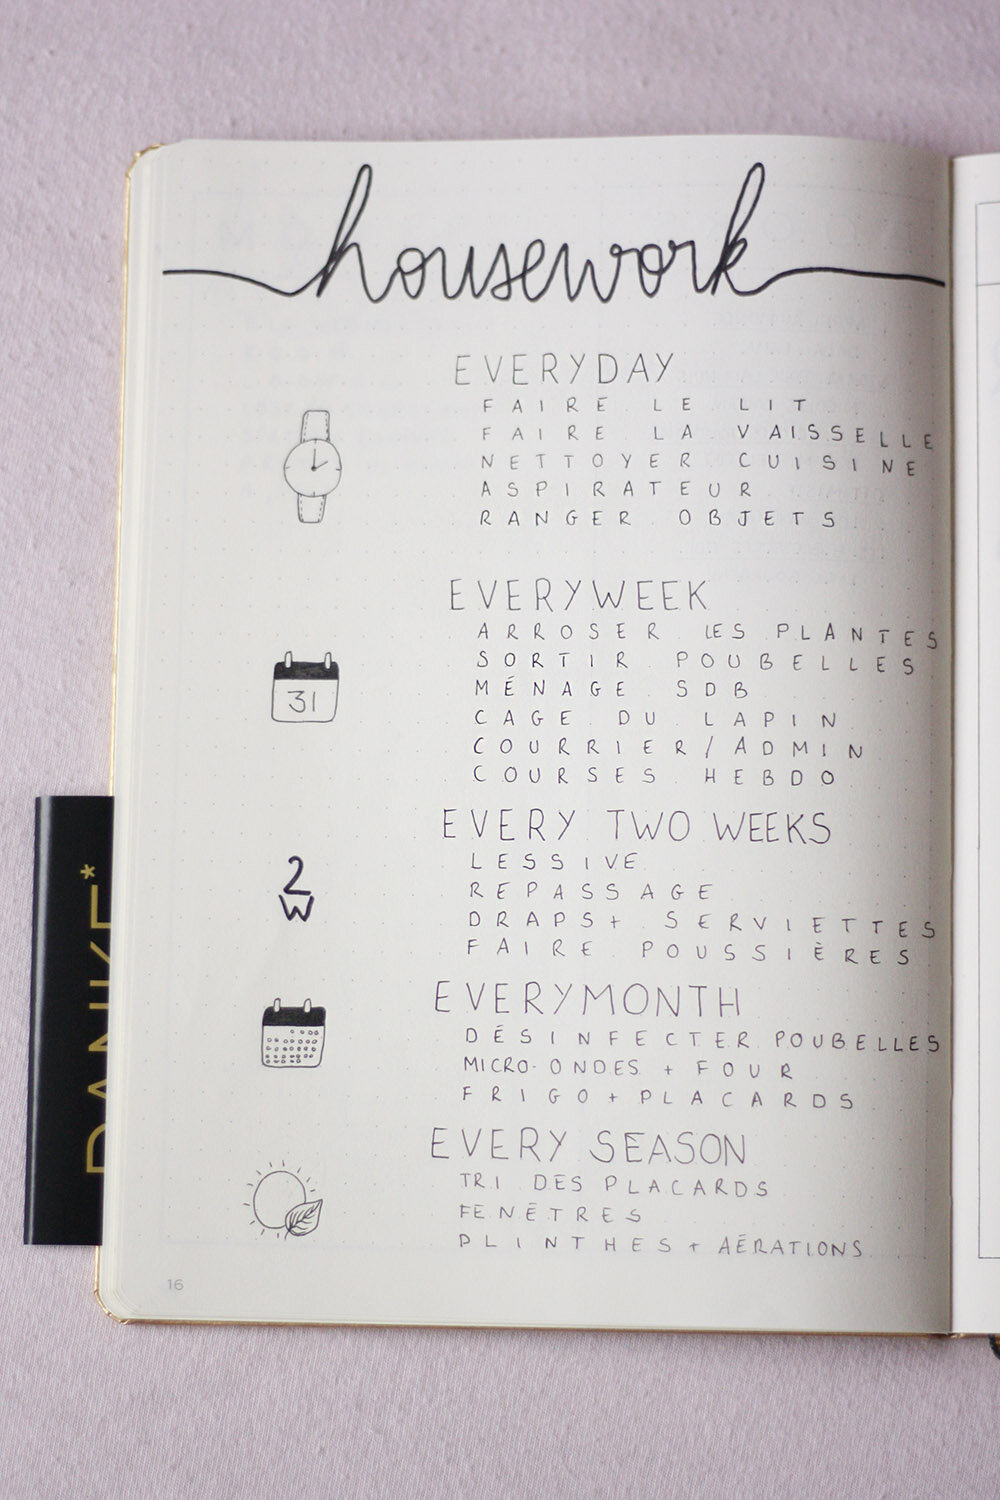 housework
EVERYDAY
FAIRE LE LIT
FAIRE LA VAISSELLE
NETTOYER CUISINE
ASPIRATEUR
RANGER OBJETS
EVERYWEEK
ARROSER LES PLANTES
SORTIR POUBELLES
MÉNAGE SDB
CAGE DU LAPIN
COURRIER/ADMIN
COURSES HEBDO
31
EVERY TWO WEEKS
LESSIVE
REPASSAGE
DRAPS+ SERVIETTES
FAIRE POUSSIÈRES
2
W
EVERYMONTH
DÉSINFECTER POUBELLES
MICRO-ONDES + FOUR
FRIGO+PLACARDS
EVERY SEASON
TRI DES PLACARDS
FENÊTRES
PLINTHES + AÉRATIONS
16
DANKE*